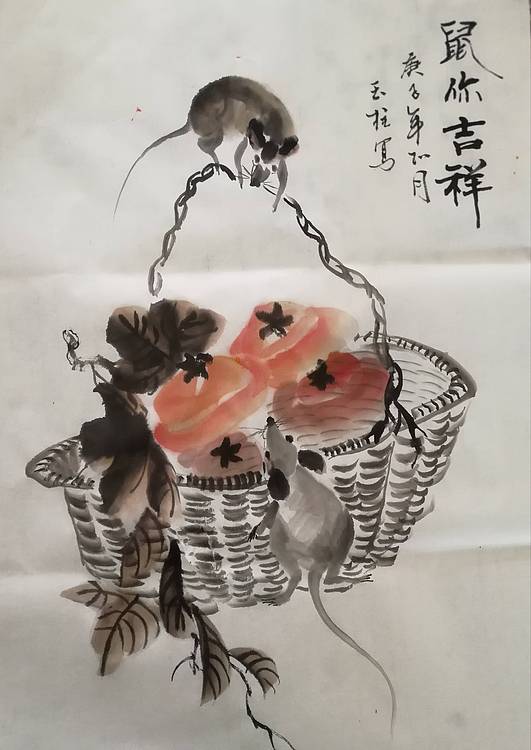 鼠你吉祥
庚子年正月
玉柱寫